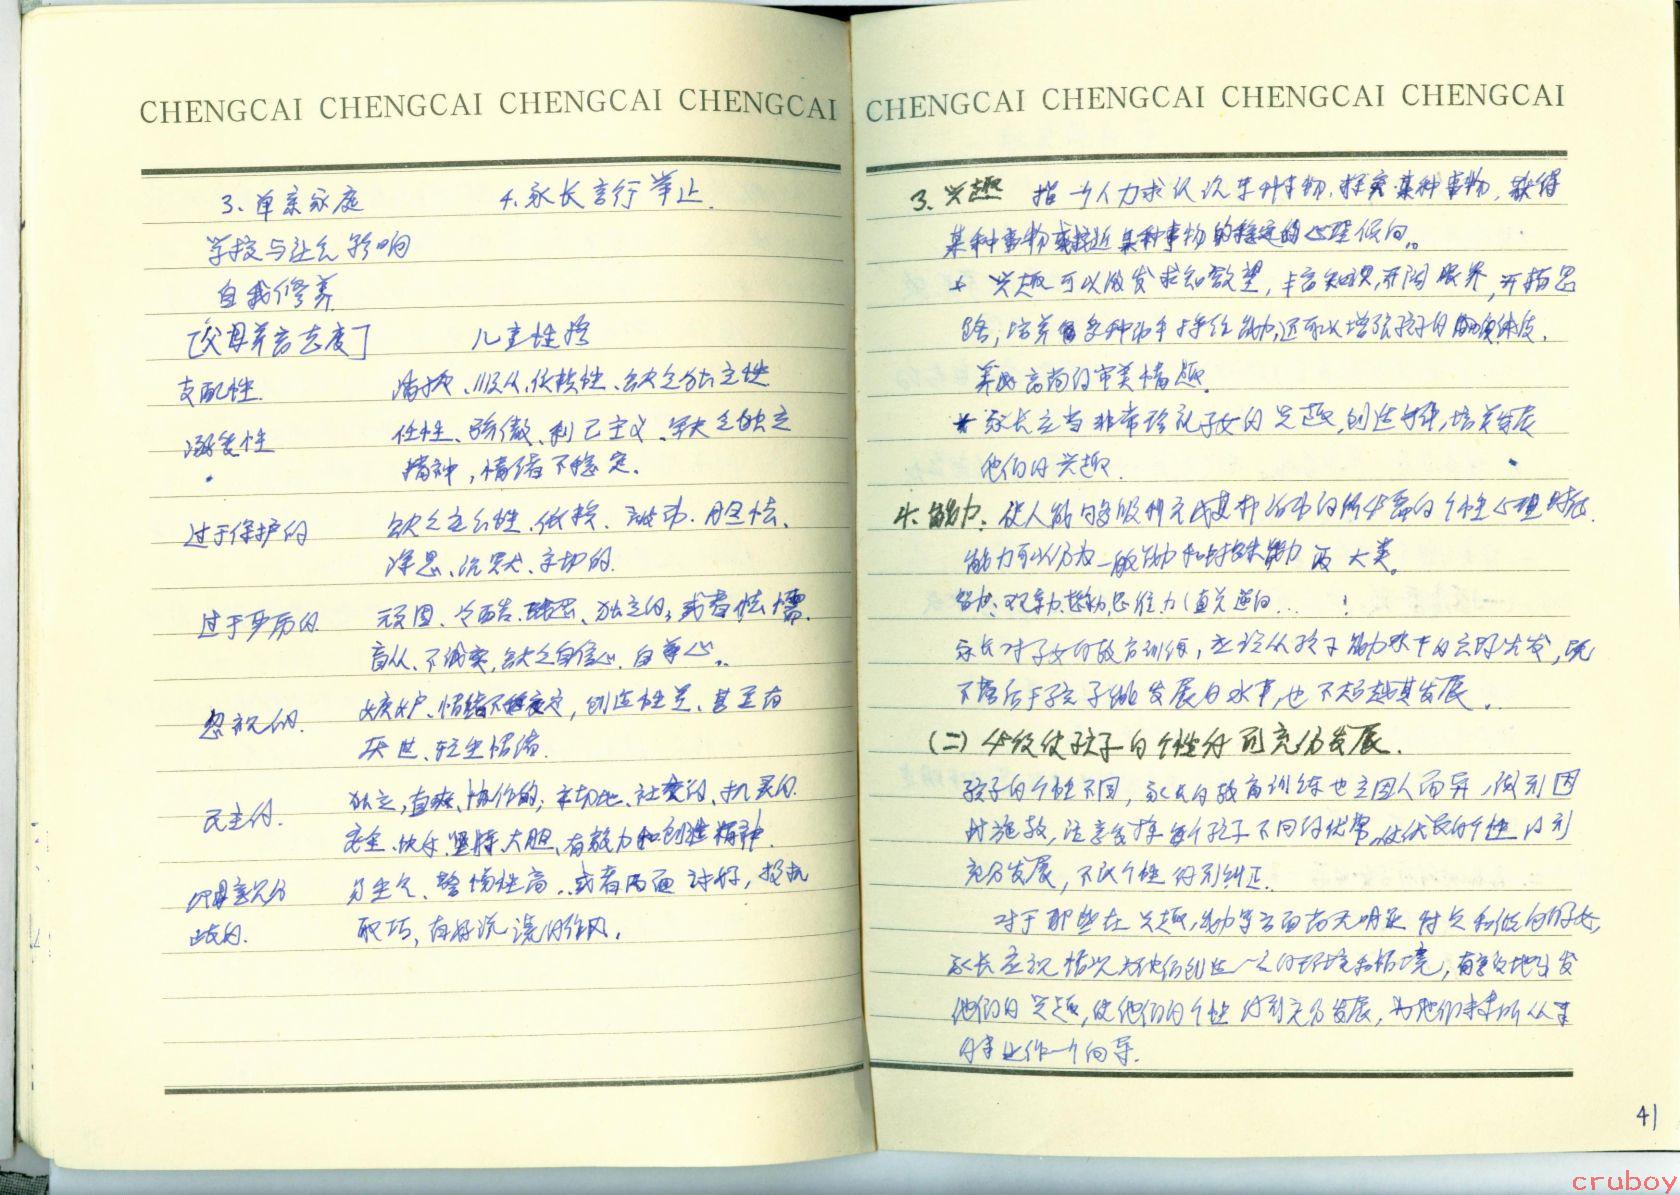 CHENGCAI CHENGCAI CHENGCAI CHENGCAI
3、单亲家庭 4.家长言行举止.
学校与社会影响
自我修养
[父母养育态度] 儿童性格
支配性. 消极、顺从、依赖性、缺乏独立性
溺爱性 任性、骄傲、利己主义、缺乏独立
精神,情绪不稳定.
过于保护的 缺乏主公性、依赖、被动、胆怯、
深思、沉默、亲切的.
过于严厉的 顽固、冷酷、残忍、独立的;或者怯懦、
盲从、不诚实,缺乏自信心、自尊心。
忽视的. 嫉妒、情绪不稳定,创造性差、甚至有
厌世、轻生情绪.
民主的. 独立,直爽、协作的,亲切地、社交的、机灵的.
安全、快乐、坚持、大胆、有毅力和创造精神.
父母意见分 易生气、警惕性高,或者两面讨好,投机
歧的. 取巧,有好说谎的作风.
CHENGCAI CHENGCAI CHENGCAI CHENGCAI
3、兴趣 指一个人力求认识某种事物.探究某种事物,获得
某种事物或接近某种事物的稳定的心理倾向。
兴趣可以激发求知欲望,丰富知识,开阔眼界,开拓思
路,培养多种动手操作能力,还可以增强孩子的体质.
养成高尚的审美情趣.
家长应当非常珍视子女的兴趣,创造条件,培养发展
他们的兴趣.
4、能力:使人能够顺利完成某种活动的所必需的个性心理特征.
能力可以分为一般能力和特殊能力两大类。
智力:观察力、想象力、思维力(直觉
家长对子女的教育训练,应该从孩子能力水平的实际出发,既
不落后于孩子能力发展的水平,也不超越其发展.
(二)必须使孩子的个性得到充分发展.
孩子的个性不同,家长的教育训练也应因人而异,做到因
材施教,注意发挥每个孩子不同的优势,使优良的个性得到
充分发展,不良个性得到纠正.
对于那些在兴趣、能力等方面尚无明显特点和优的子女,
家长应视情况为他们创造一定的环境和情境,有意识地激发
他们的兴趣,使他们的个性得到充分发展,为他们未来所从事
的事业作一个向导.
41
cruboy